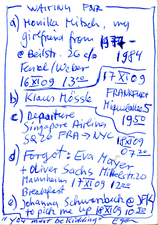 WAITING FOR
a) Monika Mitsch, my
girlfriend from 1977-
1984
@ Beilstr. 26 c/o
Ferkel/Weber
16 XI 09 13:20
17 XI 09
b) Klaus Mössle
FRANKFURT
19 50
c) Departure
Singapore Airlines
SQ 26 FRA → NYC
18 XI 09
07:20
d) Forgot: Eva Mayer
+ Oliver Sachs
Breakfast 17 XI 09 12 00
e) Johanna Schwanbeck @ JFK
to pick me up 18 XI 09 10 20
"You must be kidding"